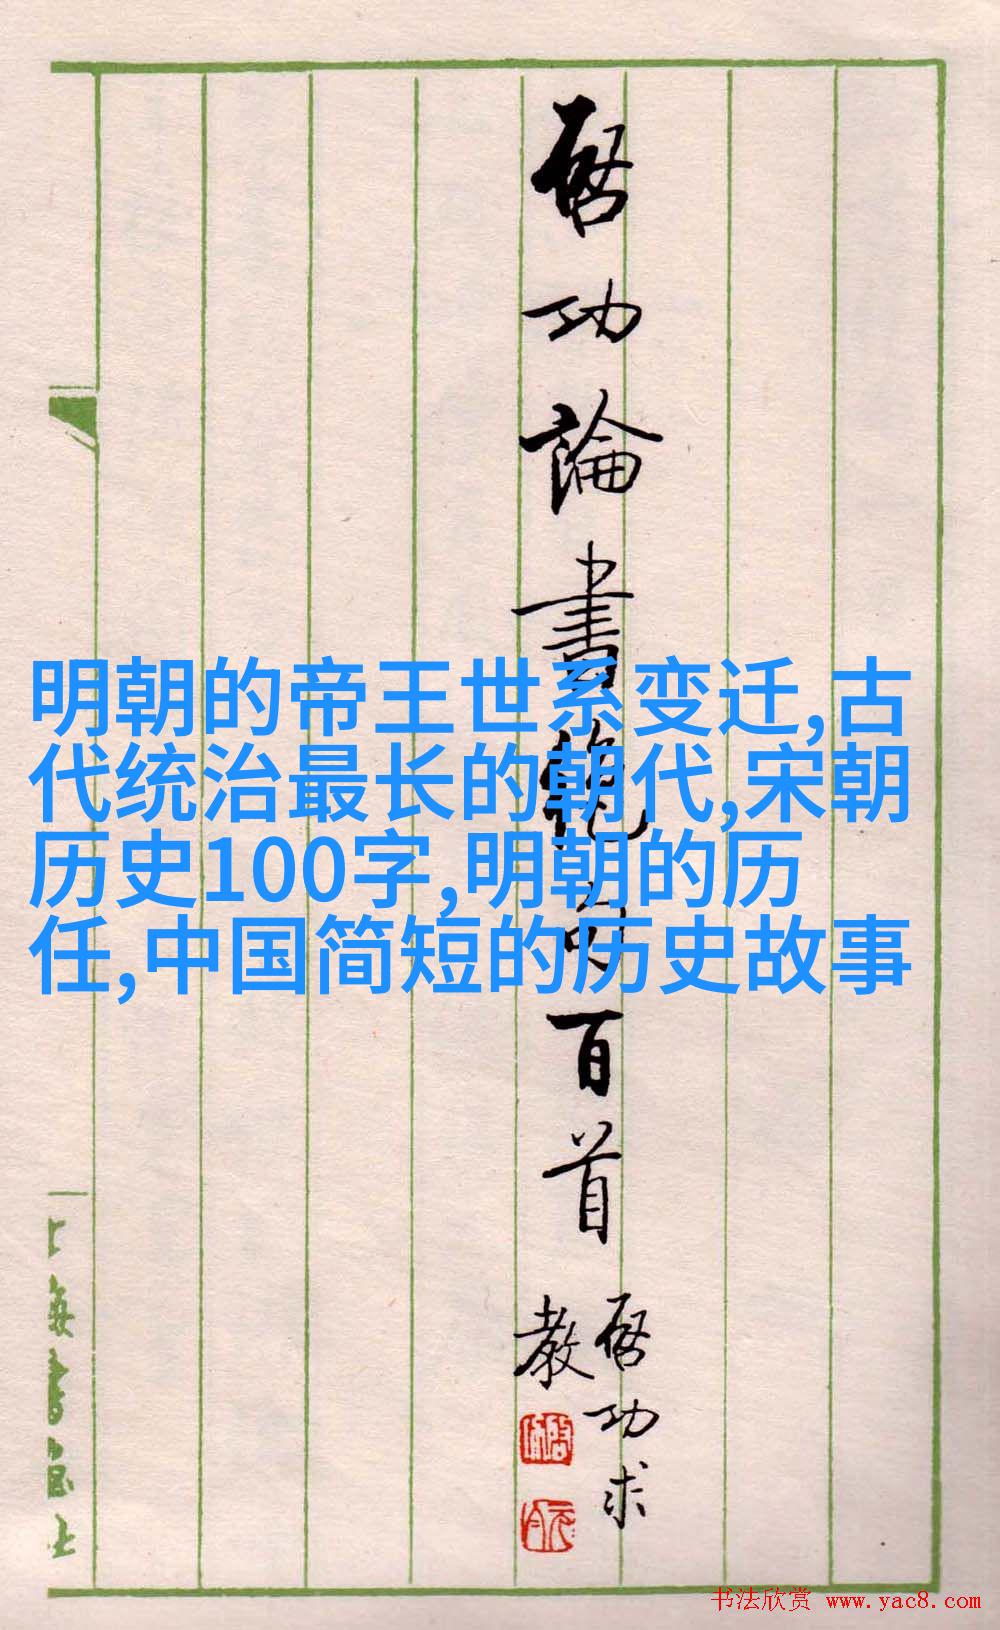 啓功論書絕句百首
啓功求
教
明朝的帝王世系变迁,古
代统治最长的朝代,宋朝
历史100字,明朝的历
任,中国简短的历史故事
上海書畫社
书法欣赏 www.yac8.com